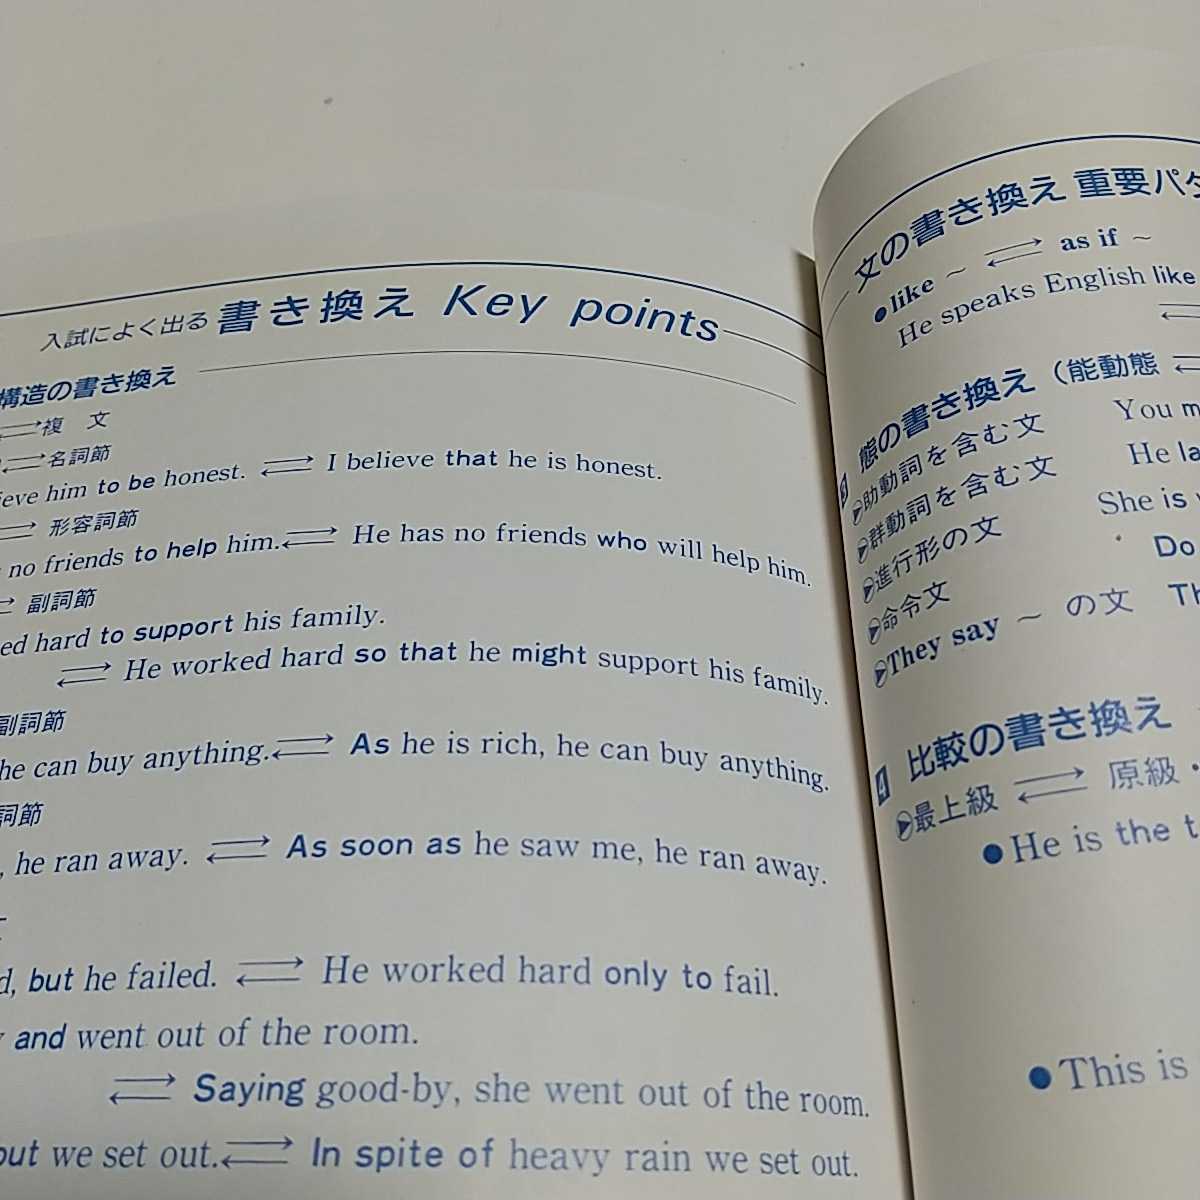 入試によく出る 書き換え Key points
構造の書き換え
⇄複 文
⇄名詞節
him to be honest. ⇄ I believe that he is honest.
⇄ 形容詞節
no friends to help him. ⇄ He has no friends who will help him.
⇄ 副詞節
hard to support his family.
⇄ He worked hard so that he might support his family.
副詞節
he can buy anything. ⇄ As he is rich, he can buy anything.
詞節
, he ran away. ⇄ As soon as he saw me, he ran away.
but he failed. ⇄ He worked hard only to fail.
and went out of the room.
⇄ Saying good-by, she went out of the room.
but we set out. ⇄ In spite of heavy rain we set out.
文の書き換え 重要パタ
●like ~ ⇄ as if ~
He speaks English like
⇄
3 態の書き換え（能動態 ⇄
助動詞を含む文 You
群動詞を含む文 He
進行形の文 She is
命令文 Do
They say ~ の文
4 比較の書き換え
最上級 ⇄ 原級・
●He is the
●This is